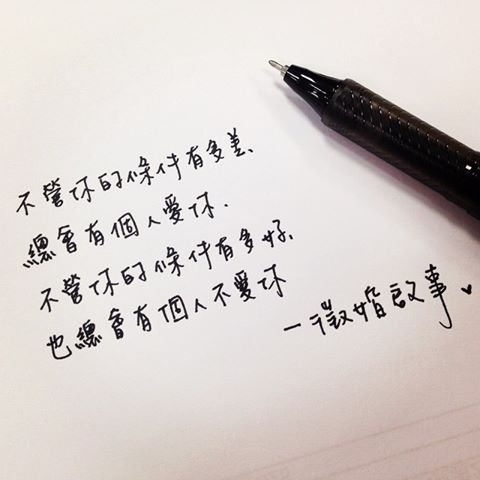 不管你的條件有多差、
總會有個人愛你.
不管你的條件有多好、
也總會有個人不愛你
—徵婚啟事